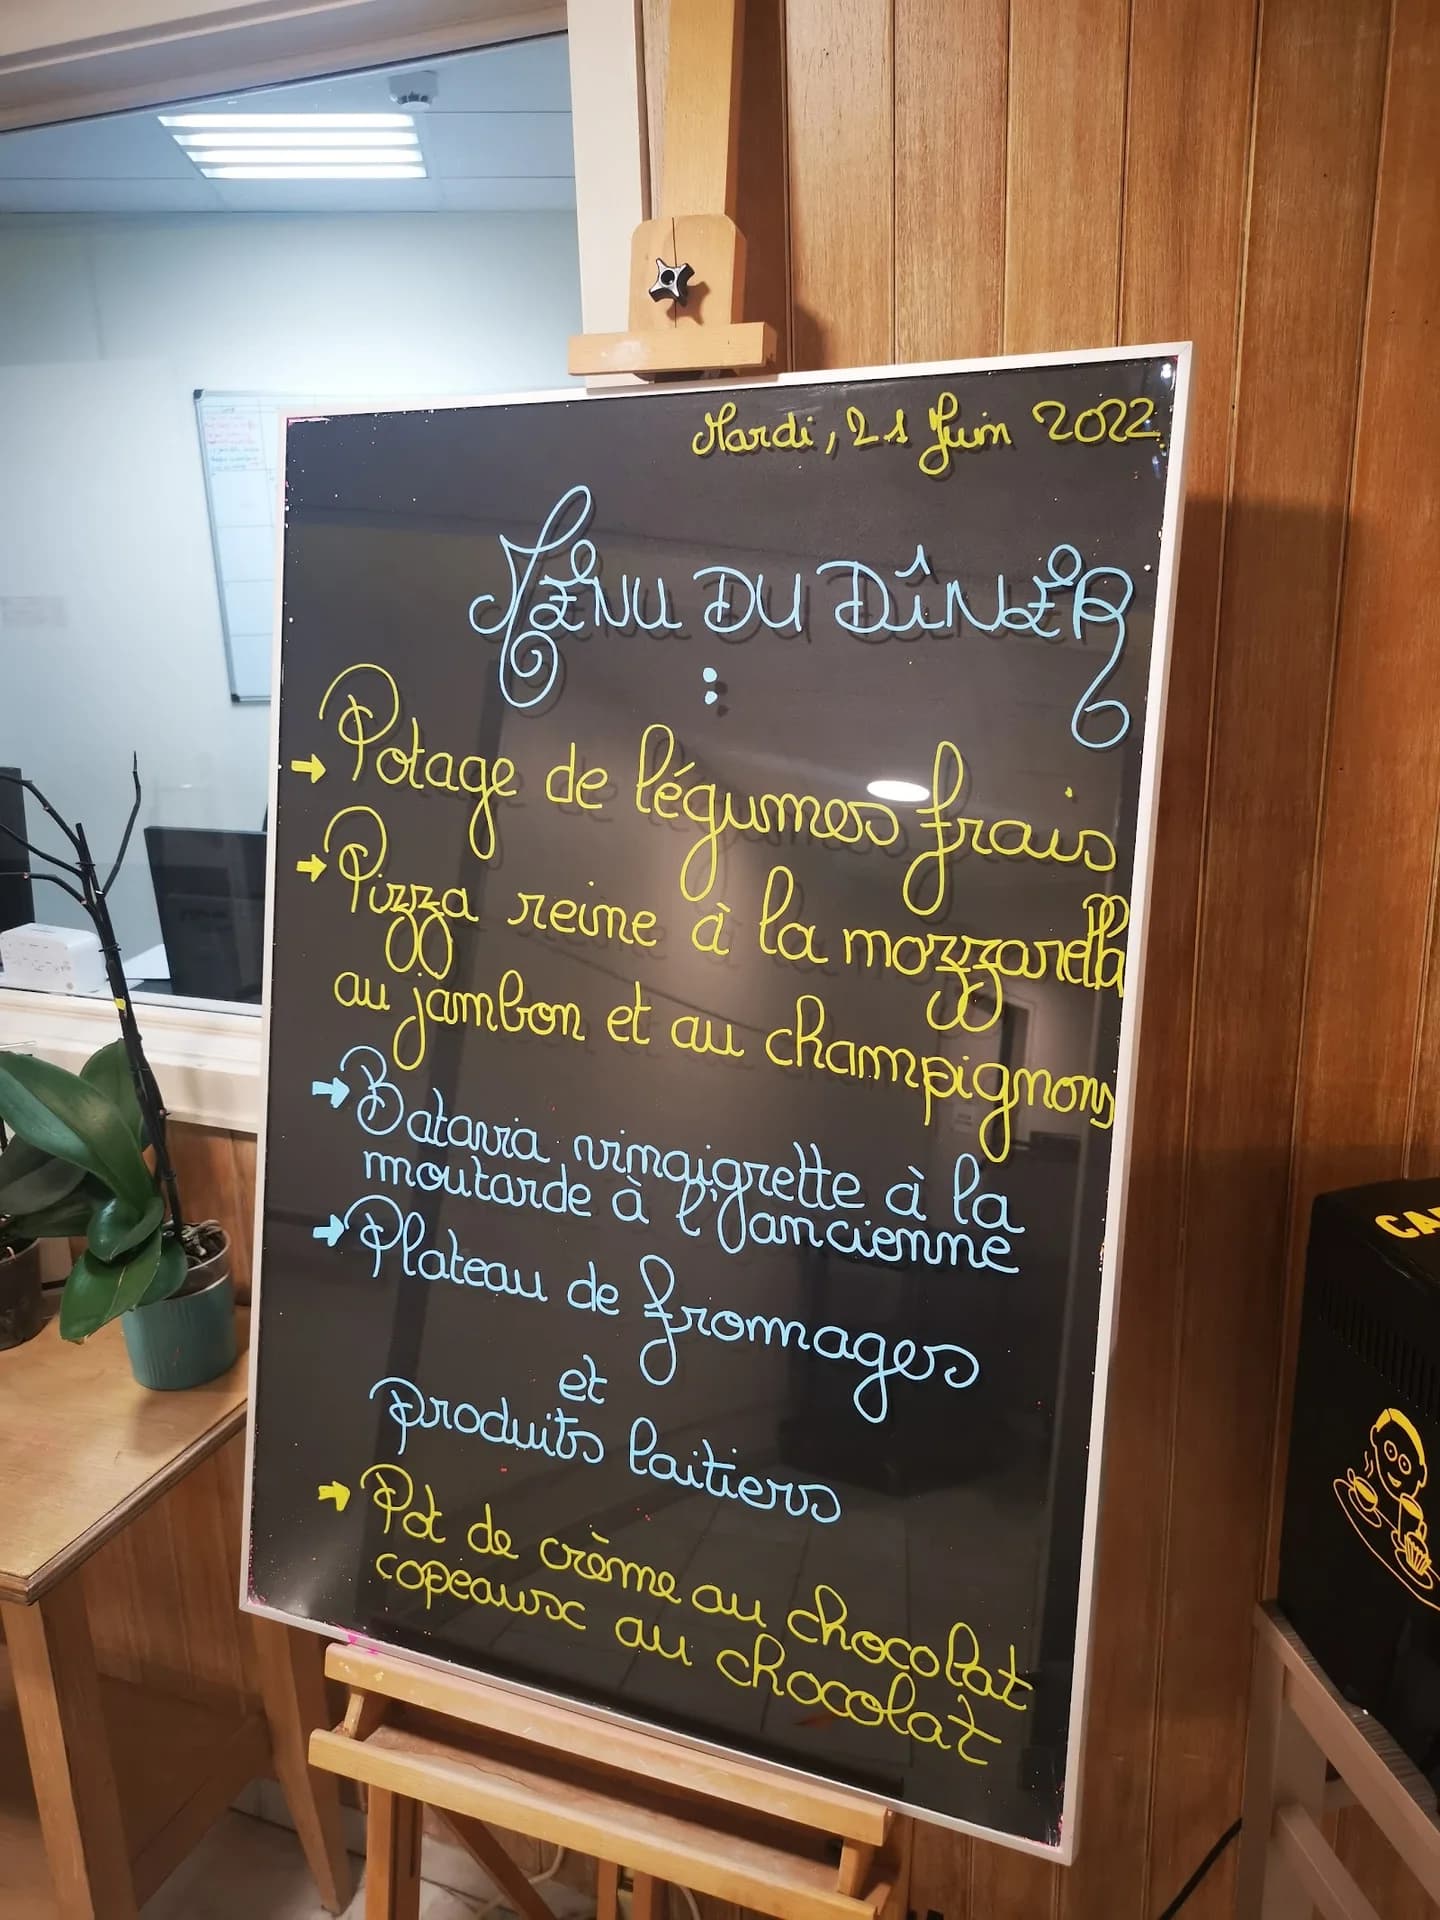 Mardi, 21 Juin 2022
MENU DU DÎNER
:
→ Potage de légumes frais
→ Pizza reine à la mozzarella
au jambon et au champignons
→ Batavia vinaigrette à la
moutarde à l'ancienne
→ Plateau de fromages
et
produits laitiers
→ Pot de crème au chocolat
copeaux au chocolat